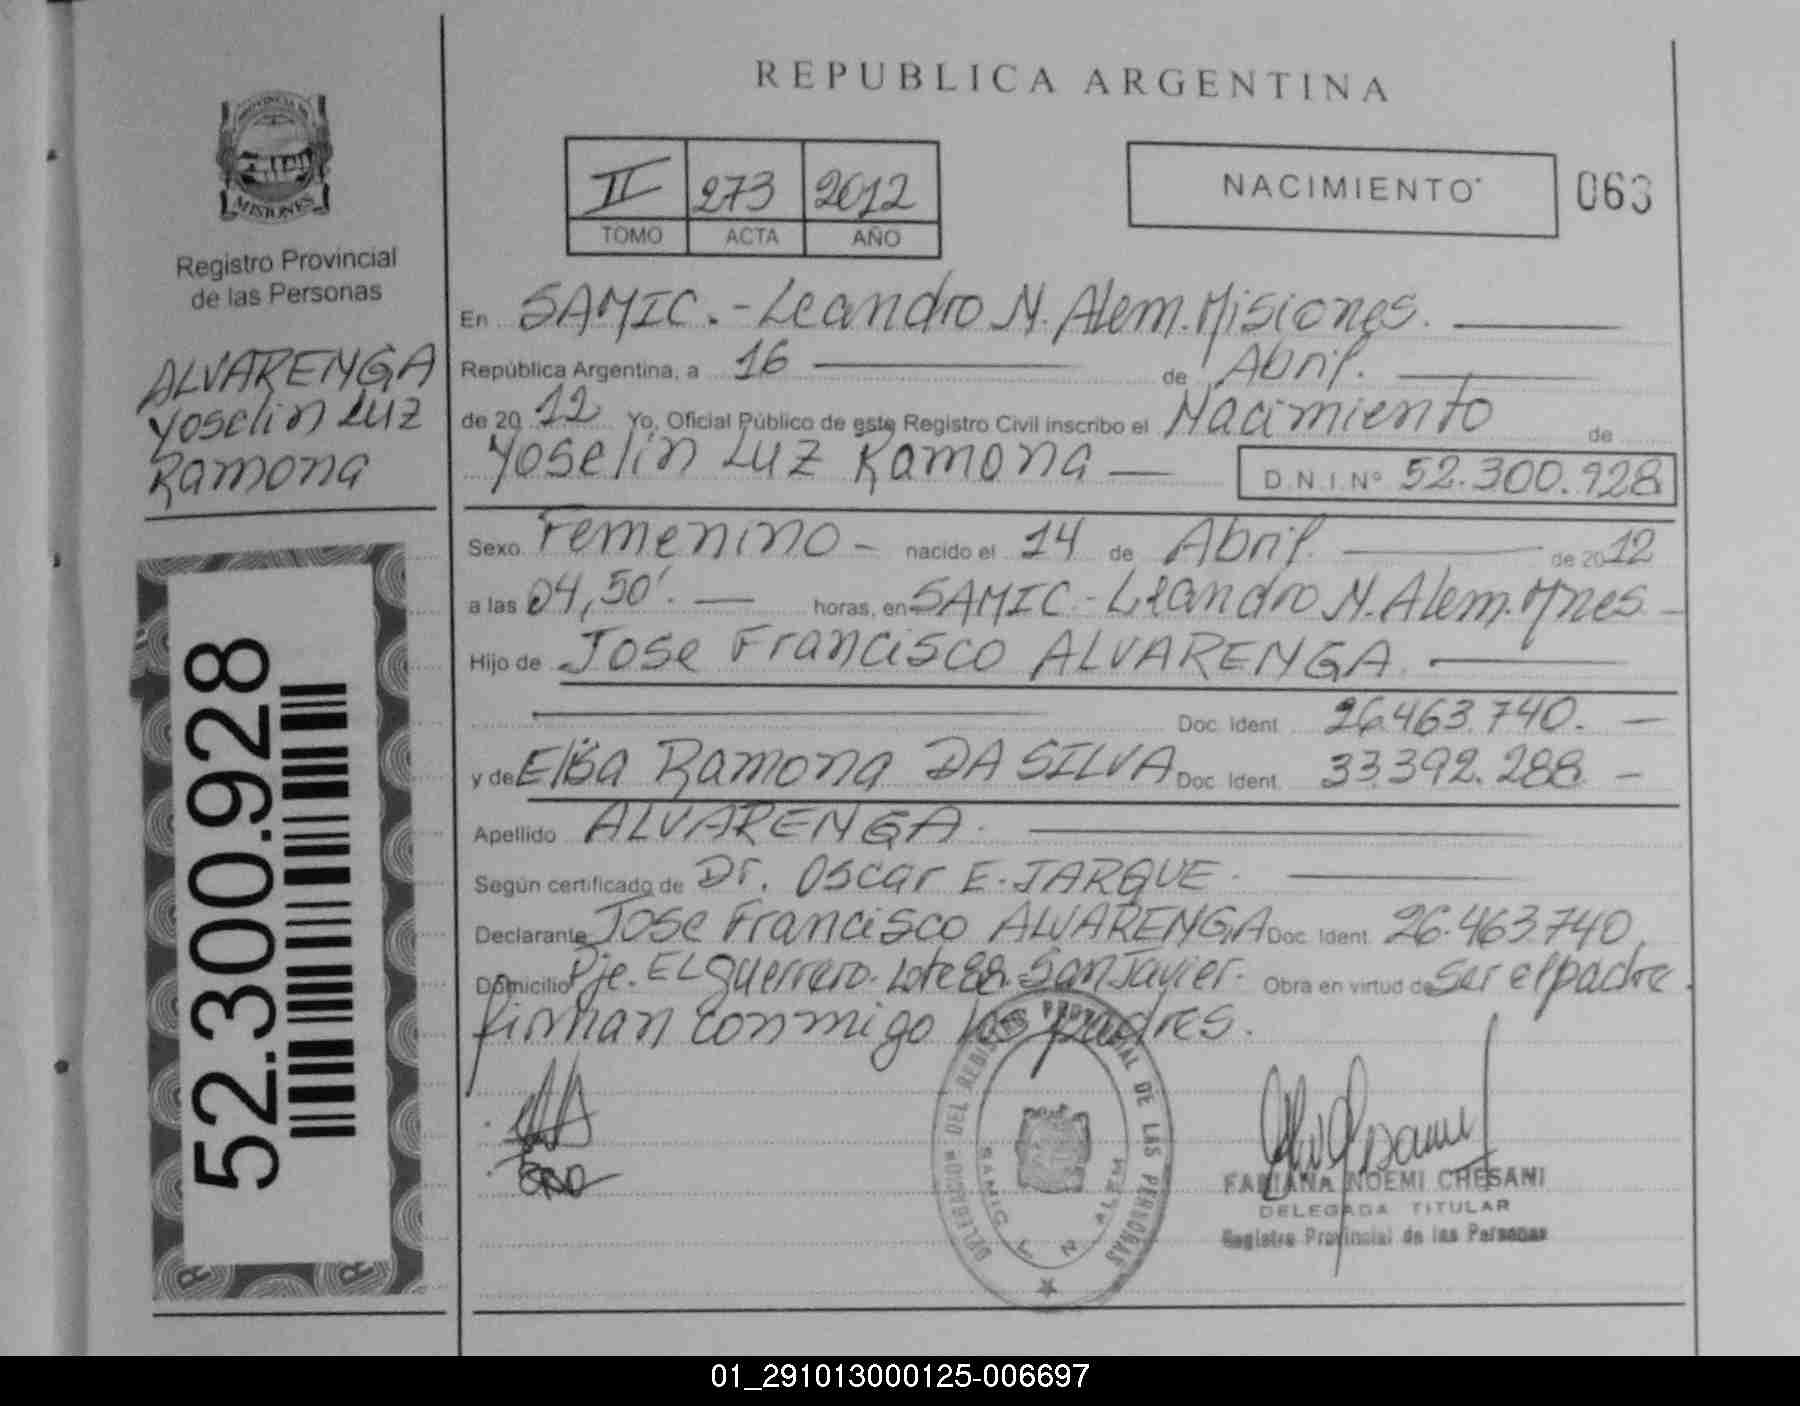 REPUBLICA ARGENTINA
PROVINCIA DE
MISIONES
Registro Provincial
de las Personas
ALVARENGA
Yoselin Luz
Ramona
52.300.928
II 273 2012
TOMO ACTA AÑO
NACIMIENTO 063
En SAMIC.-Leandro N. Alem. Misiones.
República Argentina, a 16 de Abril.
de 2012 Yo, Oficial Público de este Registro Civil inscribo el Nacimiento de
Yoselin Luz Ramona D.N.I.Nº 52.300.928
Sexo Femenino - nacido el 14 de Abril de 2012
a las 04,50'. horas, en SAMIC-Leandro N. Alem. Mnes.
Hijo de Jose Francisco ALVARENGA.
Doc. Ident. 26.463.740.
y de Elsa Ramona DA SILVA Doc. Ident. 33.392.288
Apellido ALVARENGA.
Según certificado de Dr. Oscar E. JARQUE.
Declarante Jose Francisco ALVARENGA Doc. Ident. 26.463.740
Domicilio Pje. EL Guerrero. Lote 88. San Javier. Obra en virtud de Ser el padre.
firman conmigo los padres.
DELEGACION DEL REGISTRO PROVINCIAL DE LAS PERSONAS
SAMIC L N ALEM
FABIANA NOEMI CHESANI
DELEGADA TITULAR
Registro Provincial de las Personas
01_291013000125-006697